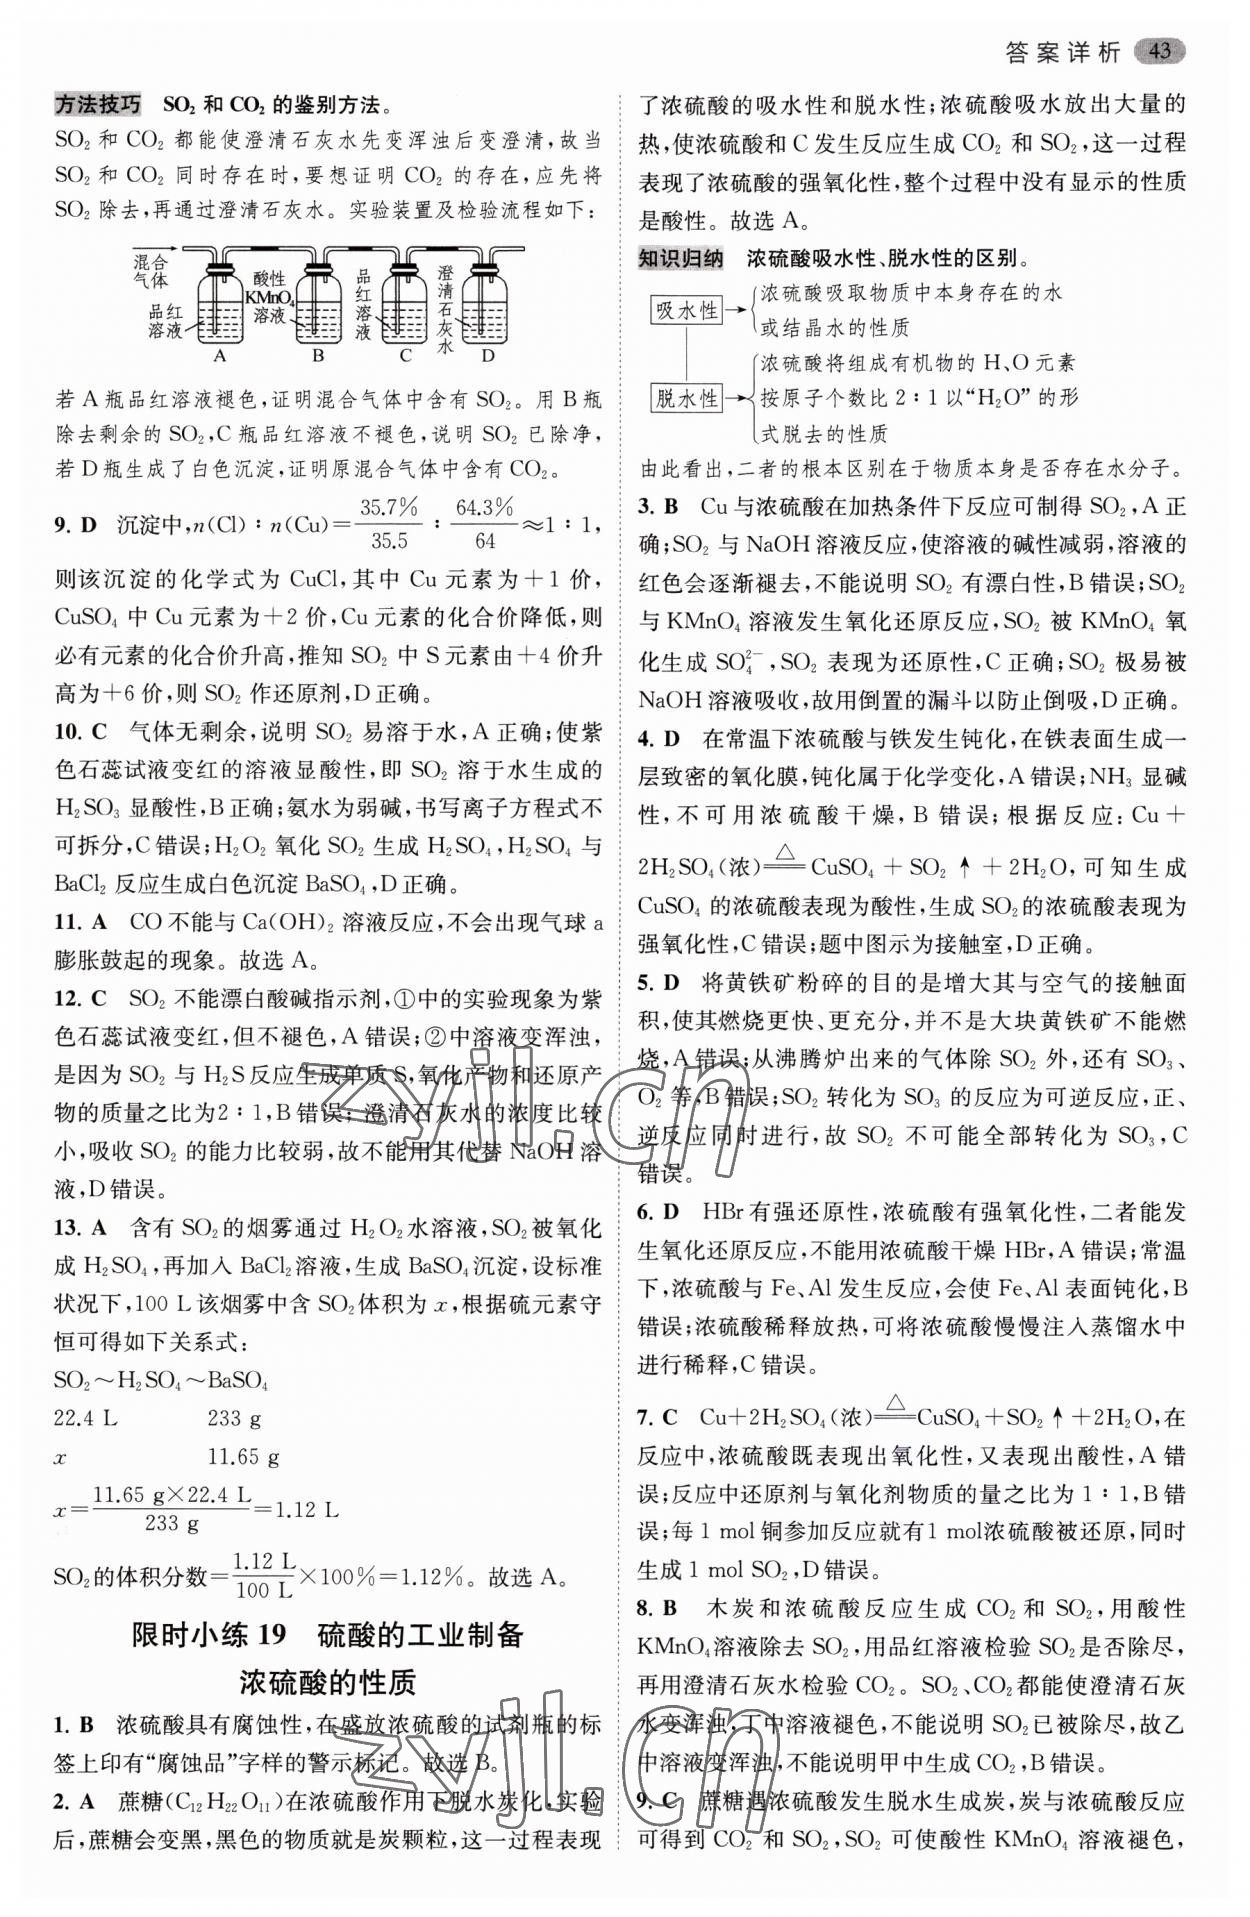 答案详析 43
方法技巧 SO₂ 和 CO₂ 的鉴别方法。
SO₂ 和 CO₂ 都能使澄清石灰水先变浑浊后变澄清,故当
SO₂ 和 CO₂ 同时存在时,要想证明 CO₂ 的存在,应先将
SO₂ 除去,再通过澄清石灰水。实验装置及检验流程如下:
混合
气体
品红
溶液
酸性
KMnO₄
溶液
品
红
溶
液
澄
清
石
灰
水
A B C D
若 A 瓶品红溶液褪色,证明混合气体中含有 SO₂。用 B 瓶
除去剩余的 SO₂,C 瓶品红溶液不褪色,说明 SO₂ 已除净,
若 D 瓶生成了白色沉淀,证明原混合气体中含有 CO₂。
9. D 沉淀中,n(Cl)∶n(Cu)=35.7%/35.5∶64.3%/64≈1∶1,
则该沉淀的化学式为 CuCl,其中 Cu 元素为+1 价,
CuSO₄ 中 Cu 元素为+2 价,Cu 元素的化合价降低,则
必有元素的化合价升高,推知 SO₂ 中 S 元素由+4 价升
高为+6 价,则 SO₂ 作还原剂,D 正确。
10. C 气体无剩余,说明 SO₂ 易溶于水,A 正确;使紫
色石蕊试液变红的溶液显酸性,即 SO₂ 溶于水生成的
H₂SO₃ 显酸性,B 正确;氨水为弱碱,书写离子方程式不
可拆分,C 错误;H₂O₂ 氧化 SO₂ 生成 H₂SO₄,H₂SO₄ 与
BaCl₂ 反应生成白色沉淀 BaSO₄,D 正确。
11. A CO 不能与 Ca(OH)₂ 溶液反应,不会出现气球 a
膨胀鼓起的现象。故选 A。
12. C SO₂ 不能漂白酸碱指示剂,①中的实验现象为紫
色石蕊试液变红,但不褪色,A 错误;②中溶液变浑浊,
是因为 SO₂ 与 H₂S 反应生成单质 S,氧化产物和还原产
物的质量之比为 2∶1,B 错误;澄清石灰水的浓度比较
小,吸收 SO₂ 的能力比较弱,故不能用其代替 NaOH 溶
液,D 错误。
13. A 含有 SO₂的烟雾通过 H₂O₂水溶液,SO₂被氧化
成 H₂SO₄,再加入 BaCl₂溶液,生成 BaSO₄沉淀,设标准
状况下,100 L 该烟雾中含 SO₂体积为 x,根据硫元素守
恒可得如下关系式:
SO₂～H₂SO₄～BaSO₄
22.4 L 233 g
x 11.65 g
x=11.65 g×22.4 L/233 g=1.12 L
SO₂的体积分数=1.12 L/100 L×100%=1.12%。故选 A。
限时小练 19 硫酸的工业制备
浓硫酸的性质
1. B 浓硫酸具有腐蚀性,在盛放浓硫酸的试剂瓶的标
签上印有“腐蚀品”字样的警示标记。故选 B。
2. A 蔗糖(C₁₂H₂₂O₁₁)在浓硫酸作用下脱水炭化,实验
后,蔗糖会变黑,黑色的物质就是炭颗粒,这一过程表现
了浓硫酸的吸水性和脱水性;浓硫酸吸水放出大量的
热,使浓硫酸和 C 发生反应生成 CO₂ 和 SO₂,这一过程
表现了浓硫酸的强氧化性,整个过程中没有显示的性质
是酸性。故选 A。
知识归纳 浓硫酸吸水性、脱水性的区别。
吸水性
浓硫酸吸取物质中本身存在的水
或结晶水的性质
脱水性
浓硫酸将组成有机物的 H、O 元素
按原子个数比 2∶1 以“H₂O”的形
式脱去的性质
由此看出,二者的根本区别在于物质本身是否存在水分子。
3. B Cu 与浓硫酸在加热条件下反应可制得 SO₂,A 正
确;SO₂ 与 NaOH 溶液反应,使溶液的碱性减弱,溶液的
红色会逐渐褪去,不能说明 SO₂ 有漂白性,B 错误;SO₂
与 KMnO₄ 溶液发生氧化还原反应,SO₂ 被 KMnO₄ 氧
化生成 SO₄²⁻,SO₂ 表现为还原性,C 正确;SO₂ 极易被
NaOH 溶液吸收,故用倒置的漏斗以防止倒吸,D 正确。
4. D 在常温下浓硫酸与铁发生钝化,在铁表面生成一
层致密的氧化膜,钝化属于化学变化,A 错误;NH₃ 显碱
性,不可用浓硫酸干燥,B 错误;根据反应:Cu+
2H₂SO₄(浓)=△=CuSO₄+SO₂↑+2H₂O,可知生成
CuSO₄ 的浓硫酸表现为酸性,生成 SO₂的浓硫酸表现为
强氧化性,C 错误;题中图示为接触室,D 正确。
5. D 将黄铁矿粉碎的目的是增大其与空气的接触面
积,使其燃烧更快、更充分,并不是大块黄铁矿不能燃
烧,A 错误;从沸腾炉出来的气体除 SO₂ 外,还有 SO₃、
O₂ 等,B 错误;SO₂ 转化为 SO₃ 的反应为可逆反应,正、
逆反应同时进行,故 SO₂ 不可能全部转化为 SO₃,C
错误。
6. D HBr 有强还原性,浓硫酸有强氧化性,二者能发
生氧化还原反应,不能用浓硫酸干燥 HBr,A 错误;常温
下,浓硫酸与 Fe、Al 发生反应,会使 Fe、Al 表面钝化,B
错误;浓硫酸稀释放热,可将浓硫酸慢慢注入蒸馏水中
进行稀释,C 错误。
7. C Cu+2H₂SO₄(浓)=△=CuSO₄+SO₂↑+2H₂O,在
反应中,浓硫酸既表现出氧化性,又表现出酸性,A 错
误;反应中还原剂与氧化剂物质的量之比为 1∶1,B 错
误;每 1 mol 铜参加反应就有 1 mol浓硫酸被还原,同时
生成 1 mol SO₂,D 错误。
8. B 木炭和浓硫酸反应生成 CO₂ 和 SO₂,用酸性
KMnO₄溶液除去 SO₂,用品红溶液检验 SO₂是否除尽,
再用澄清石灰水检验 CO₂。SO₂、CO₂都能使澄清石灰
水变浑浊,丁中溶液褪色,不能说明 SO₂已被除尽,故乙
中溶液变浑浊,不能说明甲中生成 CO₂,B 错误。
9. C 蔗糖遇浓硫酸发生脱水生成炭,炭与浓硫酸反应
可得到 CO₂ 和 SO₂,SO₂ 可使酸性 KMnO₄ 溶液褪色,
zyjl.cn
zyjl.cn